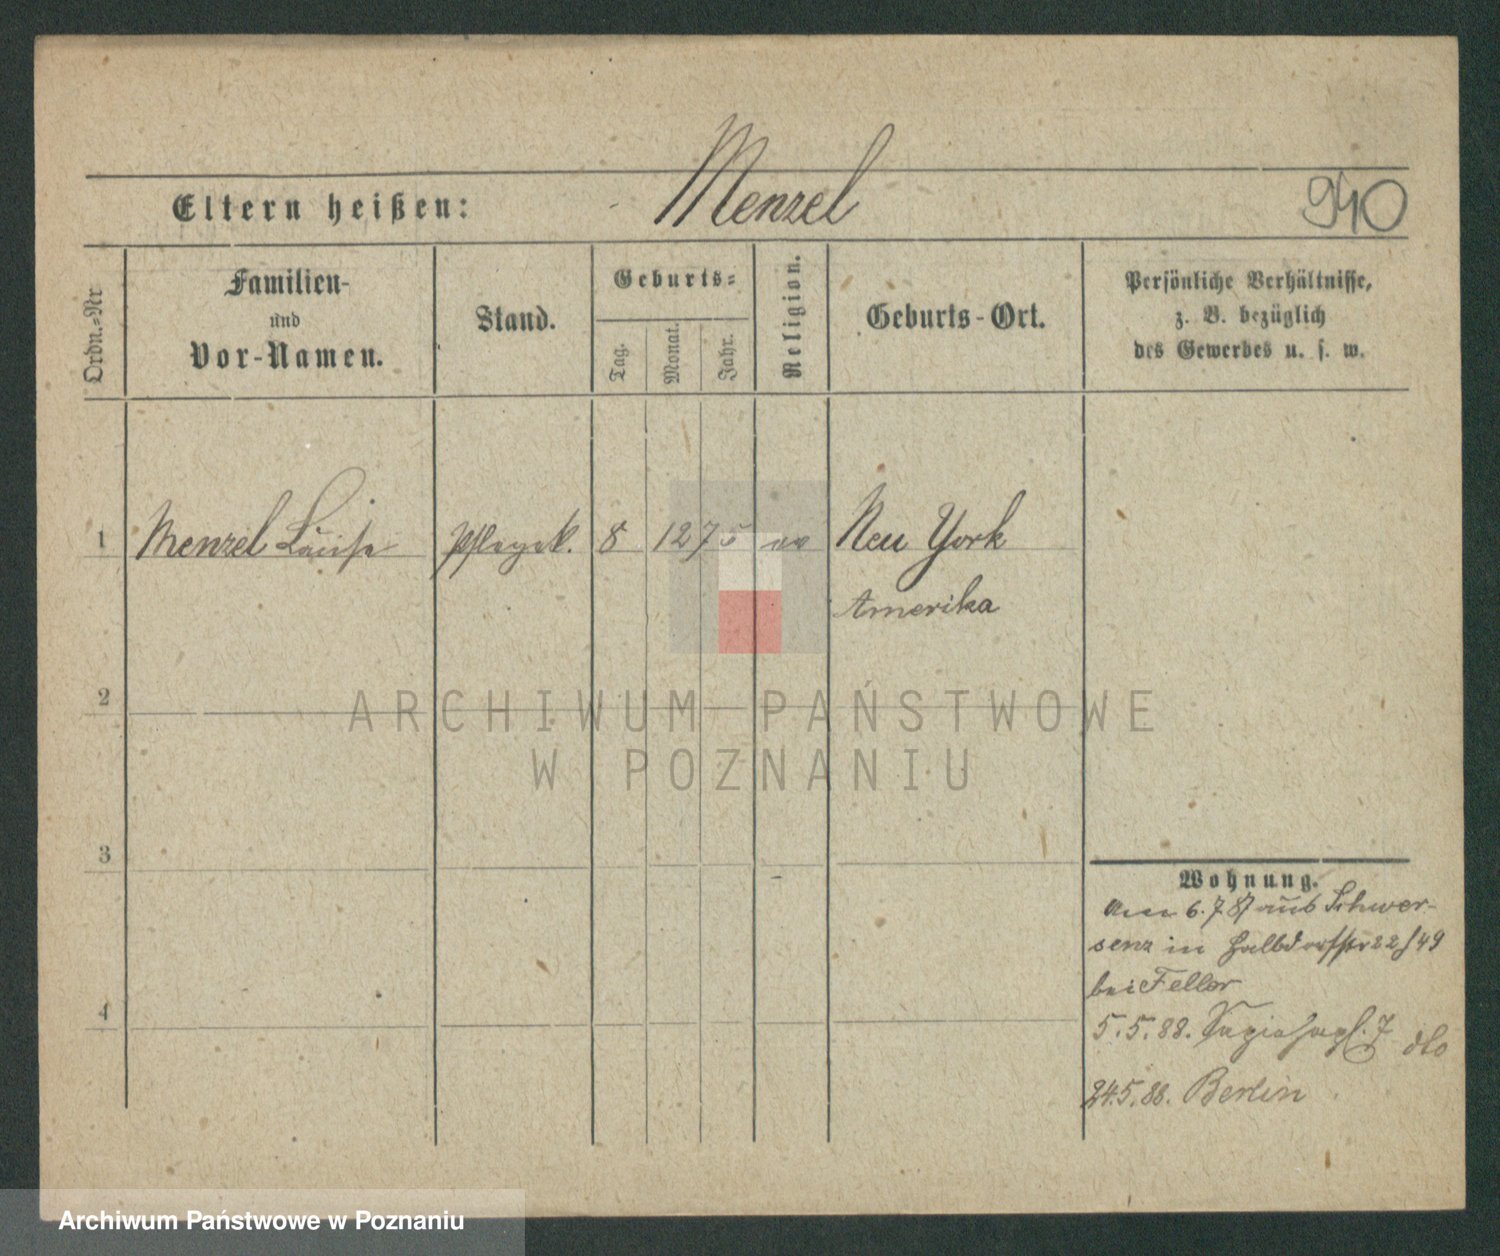 Menzel
Eltern heißen:
940
Ordn.-Nr
Familien-
und
Vor-Namen.
Stand.
Geburts-
Tag.
Monat.
Jahr.
Religion.
Geburts-Ort.
Persönliche Verhältnisse,
z. B. bezüglich
des Gewerbes u. s. w.
1 Menzel Luise Pflegek. 8 12 75 ev New York
Amerika
2
ARCHIWUM PAŃSTWOWE
W POZNANIU
3
Wohnung.
6. 7 87 aus Schwer-
senz in Halbdorfstr 22 49
bei Feller
4
5. 5. 88. 7 dto
24.5.88. Berlin
Archiwum Państwowe w Poznaniu